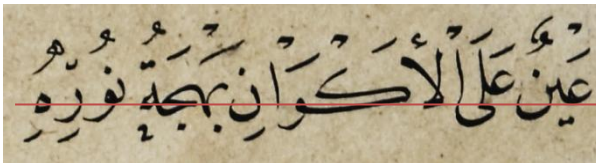 عَيْنٌ عَلَى الْأَكْوَانِ بَهْجَةُ نُورِهِ